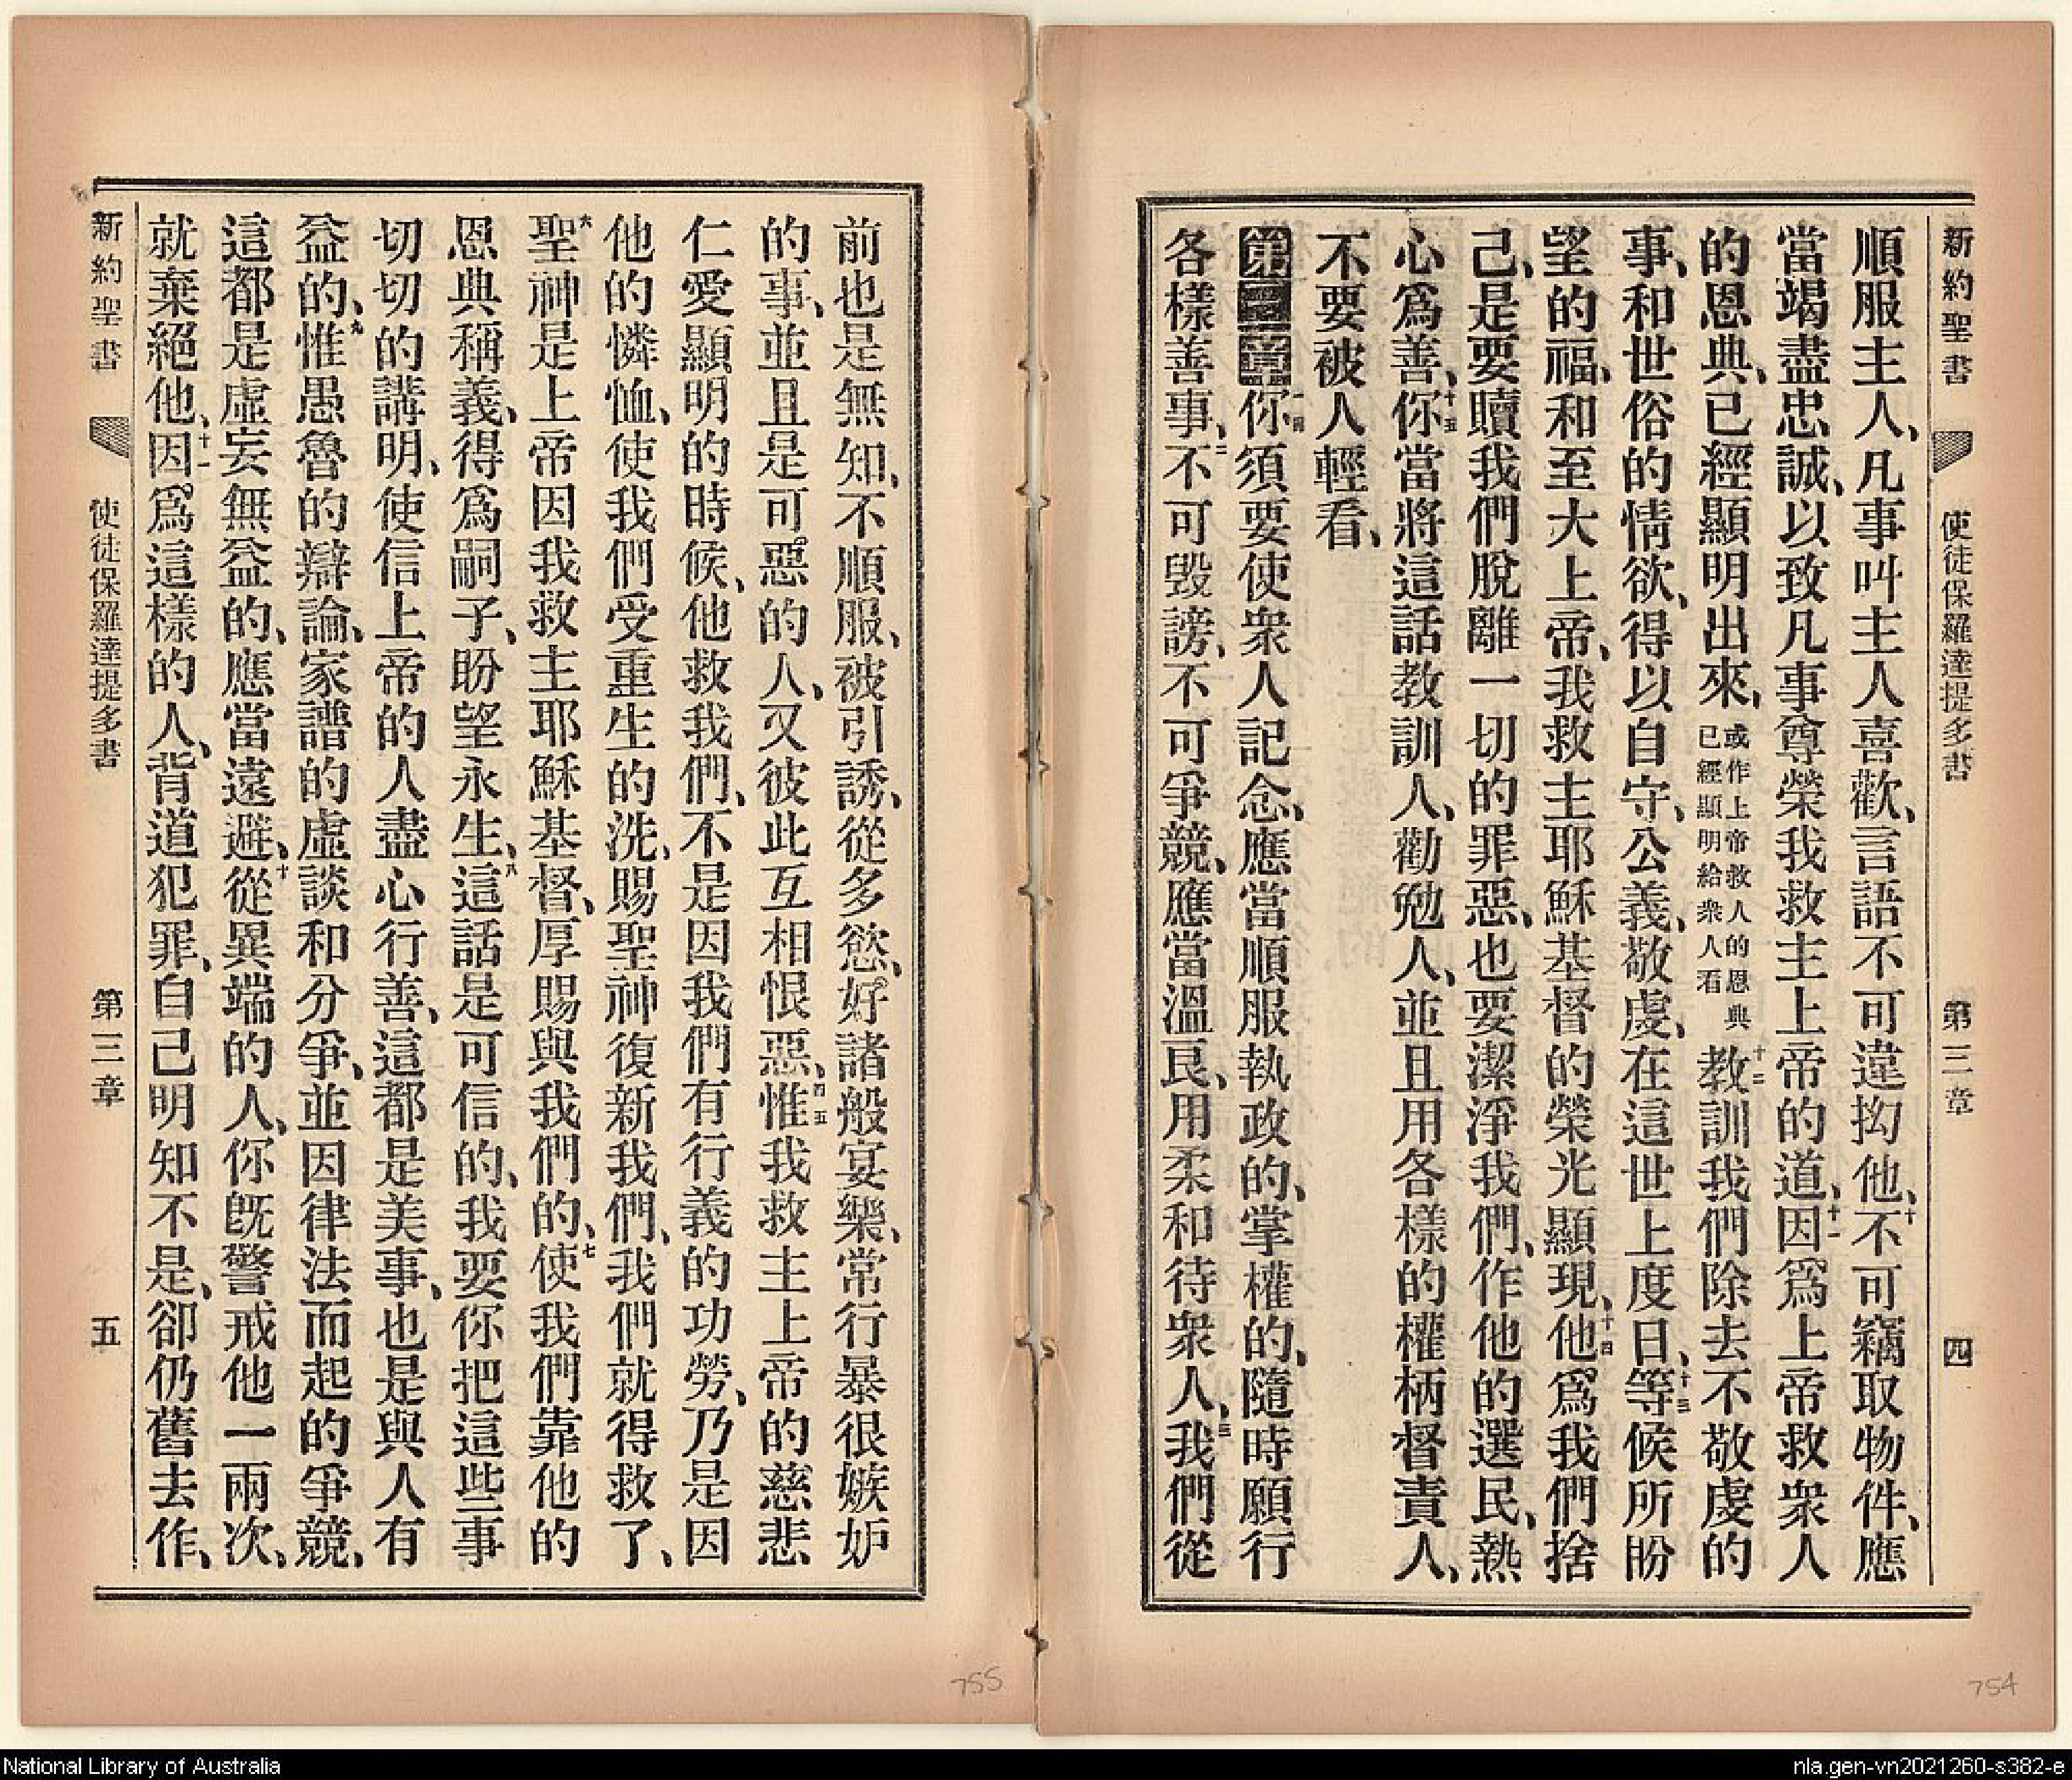 新約聖書 使徒保羅達提多書 第三章 四
順服主人、凡事叫主人喜歡、言語不可違拗他、十不可竊取物件、應
當竭盡忠誠、以致凡事尊榮我救主上帝的道、十一因爲上帝救衆人
的恩典、已經顯明出來、或作上帝救人的恩典已經顯明給衆人看十二教訓我們除去不敬虔的
事、和世俗的情欲、得以自守、公義、敬虔、在這世上度日、十三等候所盼
望的福、和至大上帝、我救主耶穌基督的榮光顯現、十四他爲我們捨
己、是要贖我們脫離一切的罪惡、也要潔淨我們、作他的選民、熱
心爲善、十五你當將這話教訓人、勸勉人、並且用各樣的權柄督責人、
不要被人輕看、
第三章一你須要使衆人記念、應當順服執政的、掌權的、隨時願行
各樣善事、二不可毀謗、不可爭競、應當溫良、用柔和待衆人、三我們從
前也是無知、不順服、被引誘、從多慾、好諸般宴樂、常行暴很嫉妒
的事、並且是可惡的人、又彼此互相恨惡、四五惟我救主上帝的慈悲
仁愛顯明的時候、他救我們、不是因我們有行義的功勞、乃是因
他的憐恤、使我們受重生的洗、賜聖神復新我們、我們就得救了、
六聖神是上帝因我救主耶穌基督、厚賜與我們的、七使我們靠他的
恩典稱義、得爲嗣子、盼望永生、八這話是可信的、我要你把這些事
切切的講明、使信上帝的人盡心行善、這都是美事、也是與人有
益的、九惟愚魯的辯論、家譜的虛談和分爭、並因律法而起的爭競、
這都是虛妄無益的、應當遠避、十從異端的人、你旣警戒他一兩次、
就棄絕他、十一因爲這樣的人、背道犯罪、自己明知不是、卻仍舊去作、
新約聖書 使徒保羅達提多書 第三章 五
754
755
National Library of Australia
nla.gen-vn2021260-s382-e